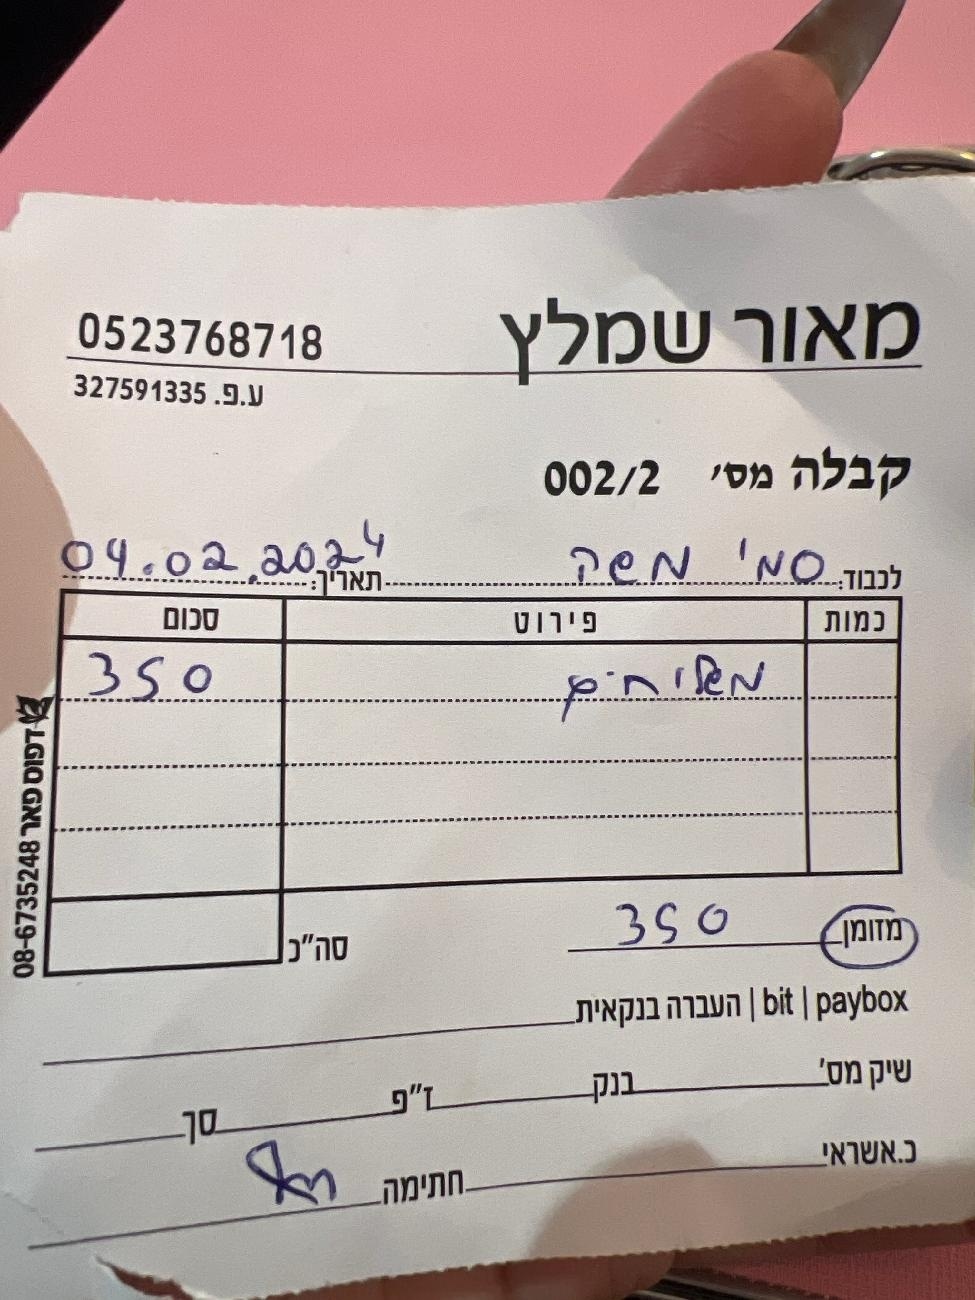 מאור שמלץ 0523768718
ע.פ. 327591335
קבלה מס׳ 002/2
לכבוד: סמי משה תאריך: 04.02.2024
כמות פירוט סכום
משלוחים 350
סה"כ
מזומן 350
העברה בנקאית | bit | paybox
שיק מס׳ בנק ז"פ סך
כ.אשראי חתימה
דפוס פאר 08-6735248